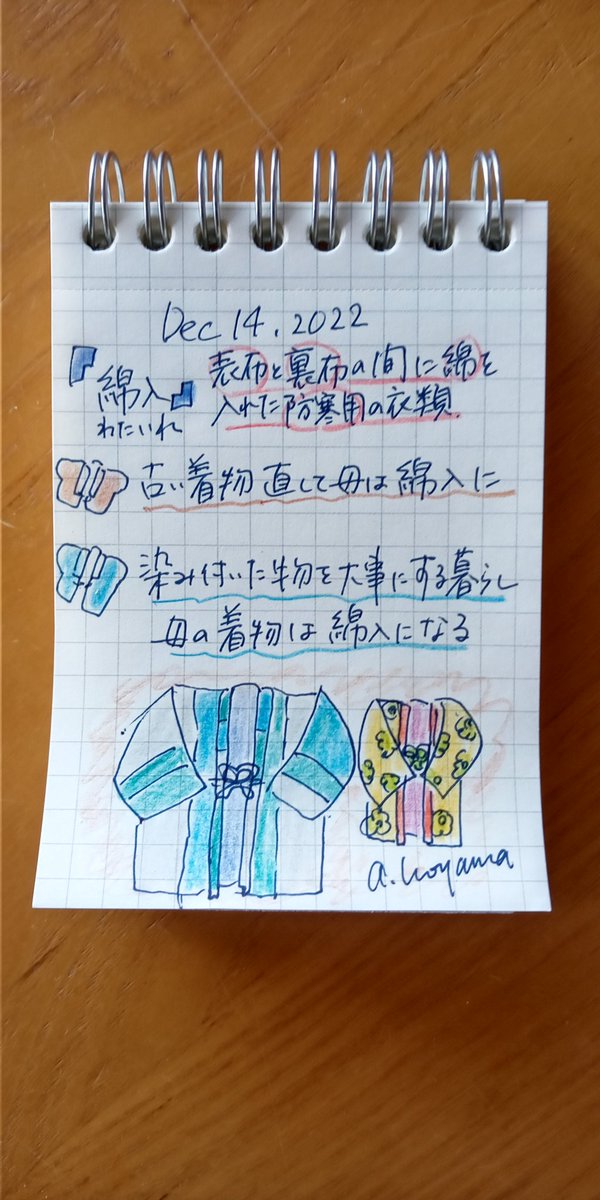 Dec 14, 2022
「綿入」
わたいれ
表布と裏布の間に綿を
入れた防寒用の衣類.
古い着物 直して母は 綿入に
染み付いた物を大事にする暮らし
母の着物は 綿入になる
a. Koyama